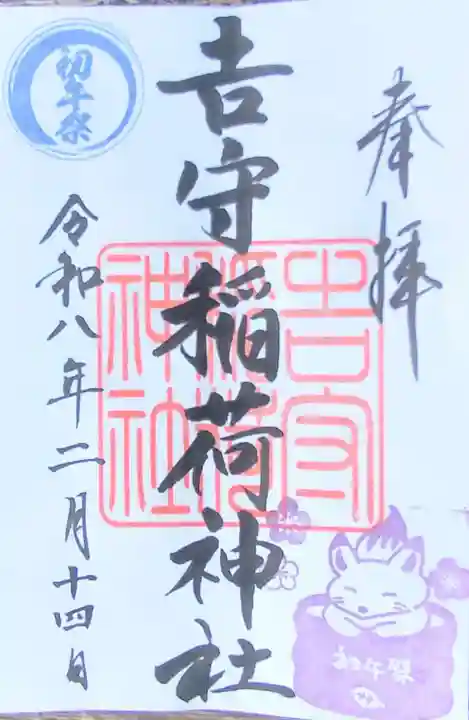 奉拝
吉守稲荷神社
吉守
稲荷
神社
初午祭
令和八年二月十四日
初午祭